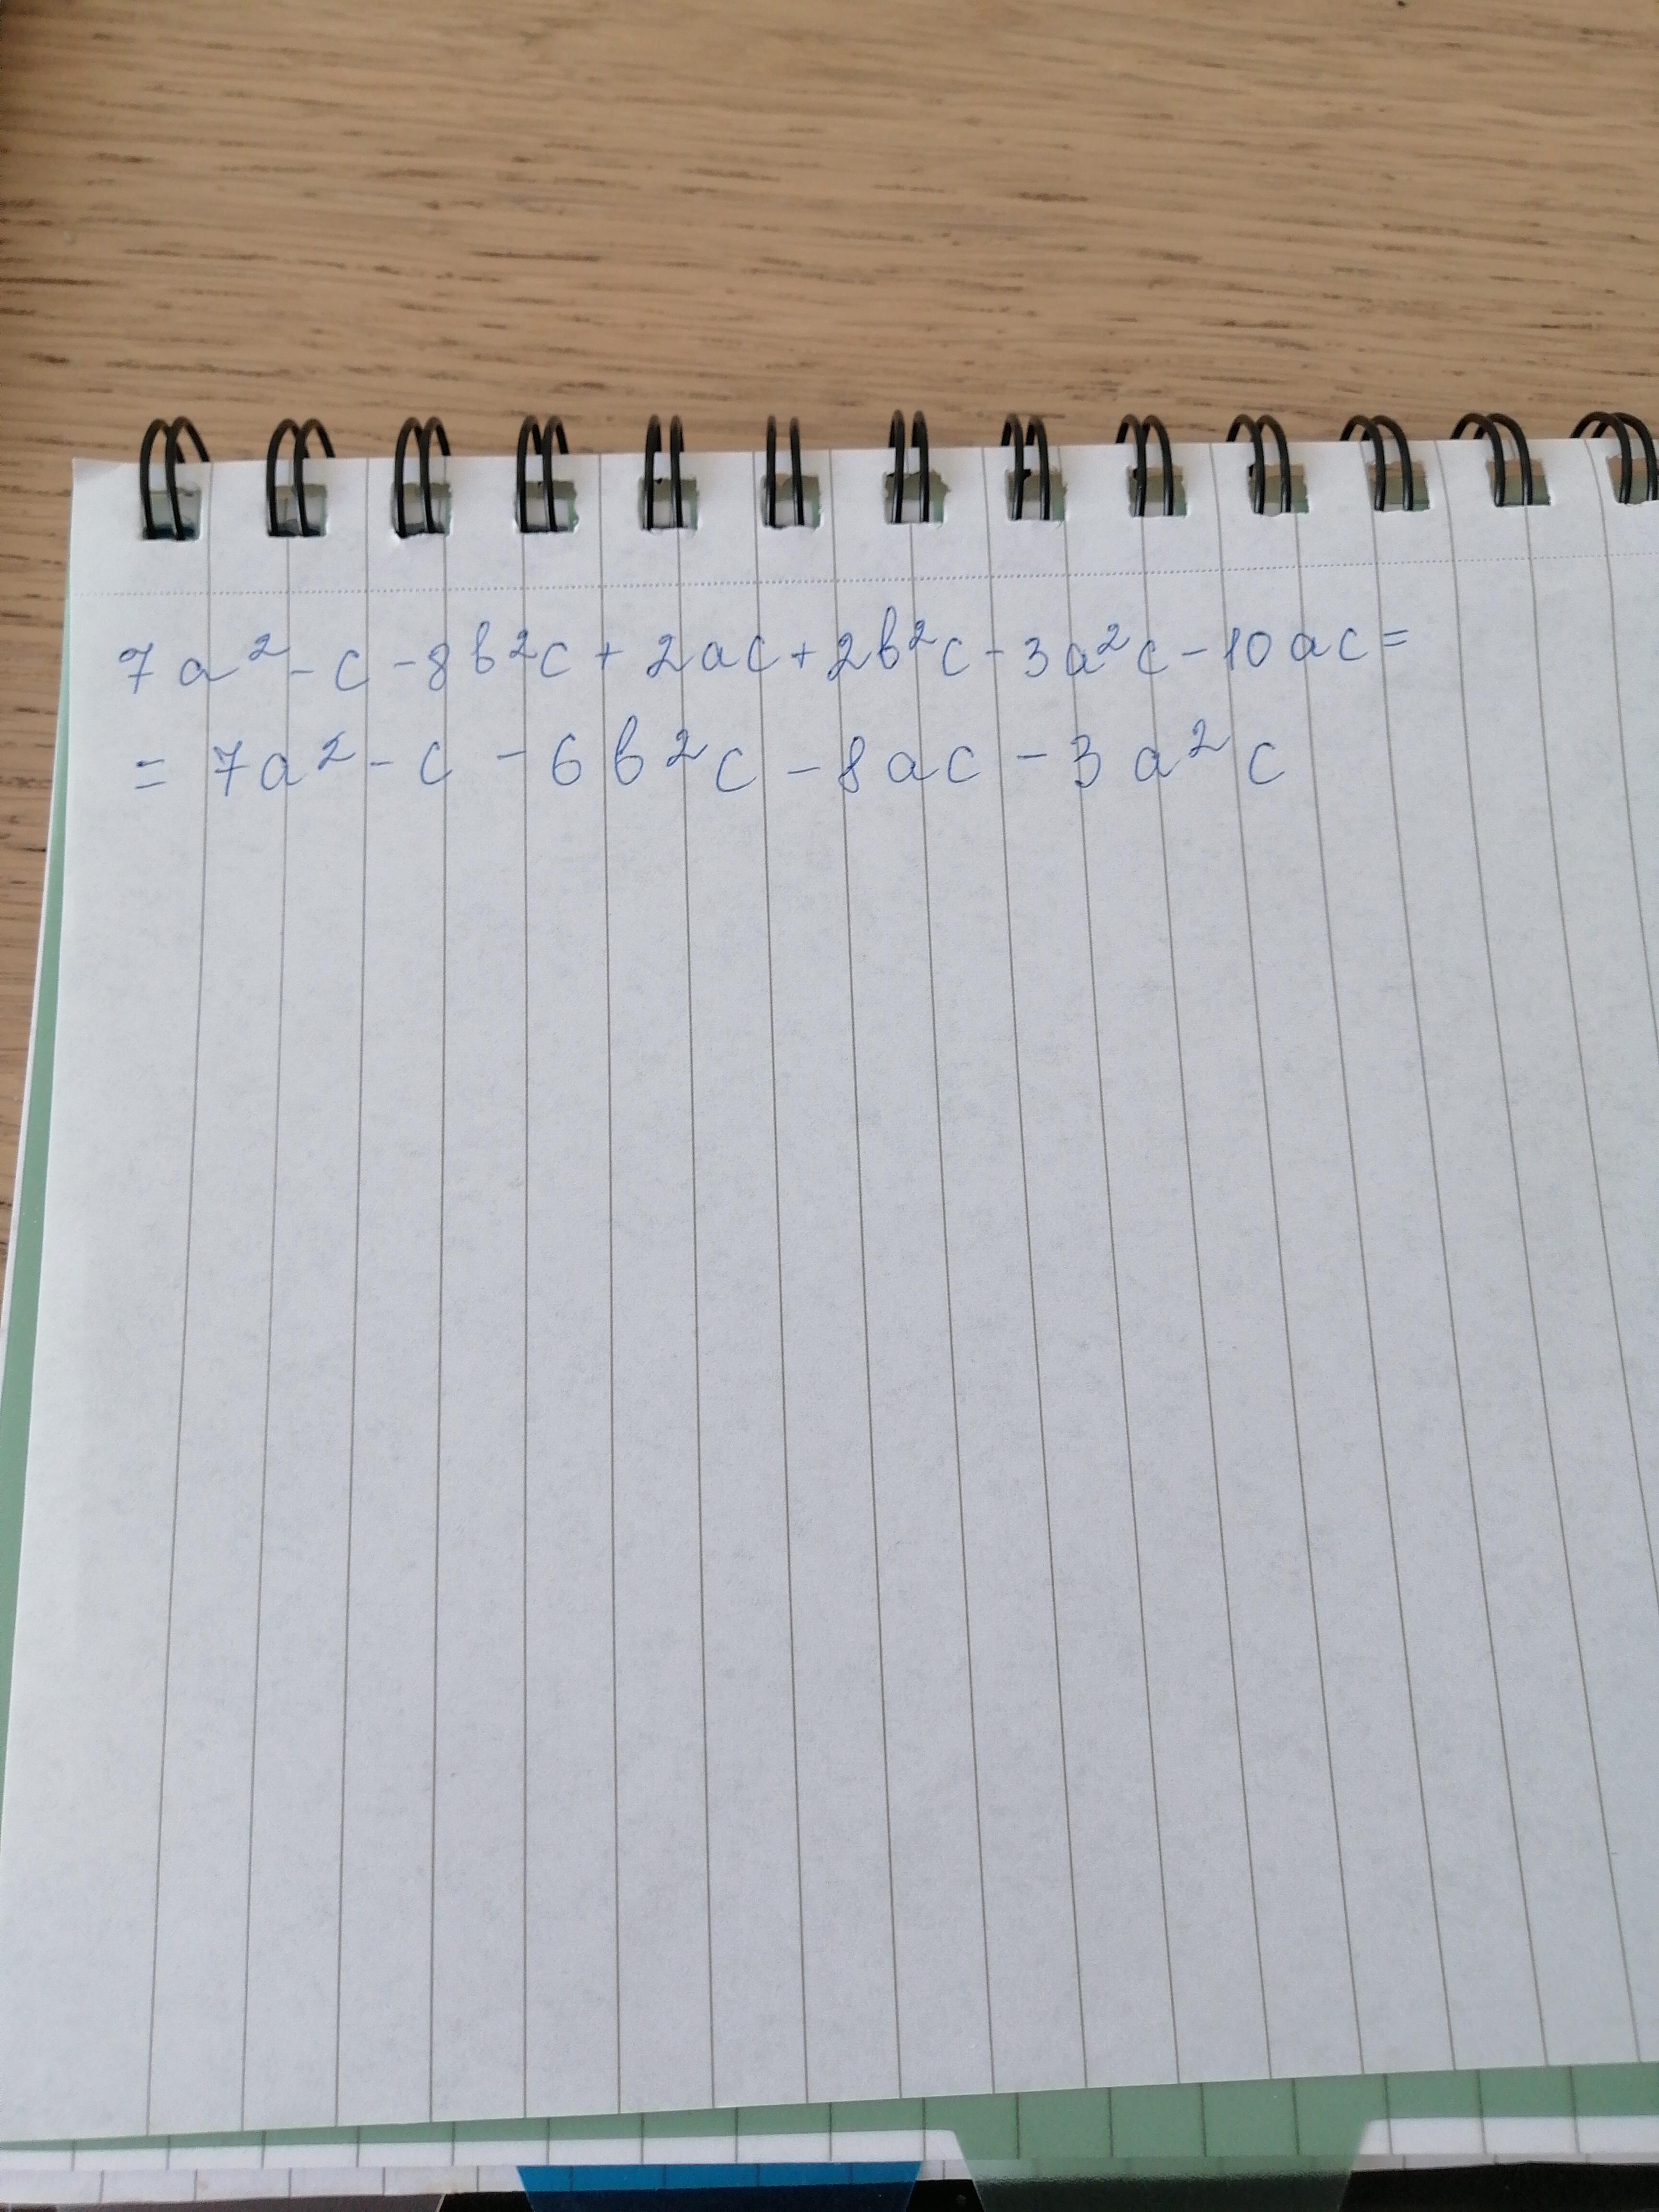 7a² - c - 8b²c + 2ac + 2b²c - 3a²c - 10ac =
= 7a² - c - 6b²c - 8ac - 3a²c